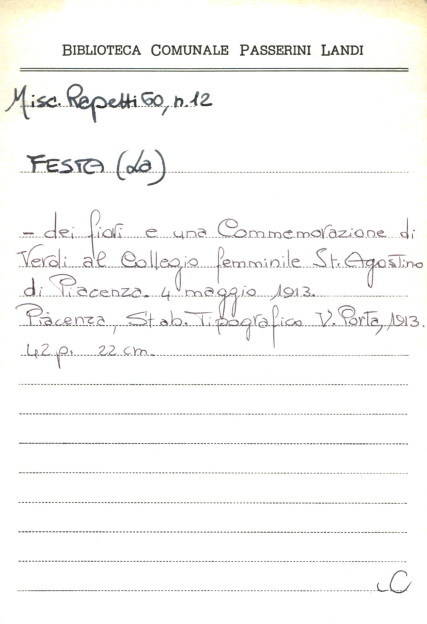 BIBLIOTECA COMUNALE PASSERINI LANDI
Misc. Rapetti 60, n. 12
FESTA (La)
- dei fiori e una Commemorazione di
Verdi al Collegio femminile St. Agostino
di Piacenza. 4 maggio 1913.
Piacenza, Stab. Tipografico V. Porta, 1913.
42 p. 22 cm.
C